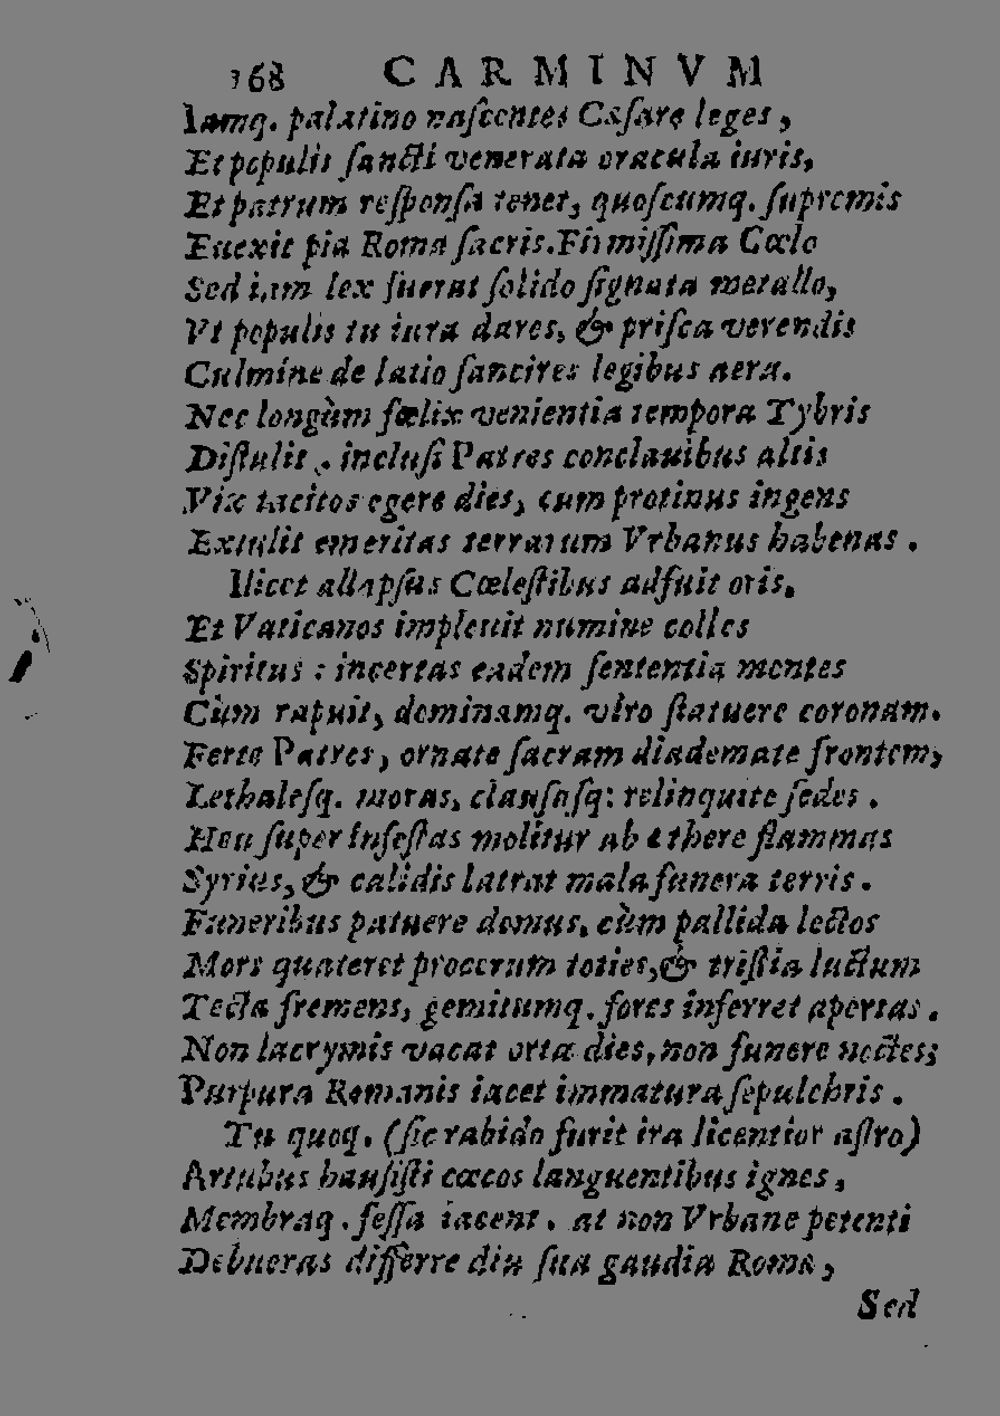 168 CARMINVM
Iamq. palatino nascentes Cæsare leges,
Et populis sancti venerata oracula iuris,
Et patrum responsa tenet, quoscumq. supremis
Euexit pia Roma sacris. Firmissima Cœlo
Sed iam lex fuerat solido signata metallo,
Vt populis tu iura dares, & prisca verendis
Culmine de latio sancires legibus aera.
Nec longùm fœlix venientia tempora Tybris
Distulit. inclusi Patres conclauibus altis
Vix tacitos egere dies, cum protinus ingens
Extulit emeritas terrarum Vrbanus habenas.
Ilicet allapsus Cœlestibus adfuit oris,
Et Vaticanos impleuit numine colles
Spiritus: incertas eadem sententia mentes
Cùm rapuit, dominamq. vltro statuere coronam.
Ferte Patres, ornate sacram diademate frontem,
Lethalesq. moras, clausasq: relinquite sedes.
Heu super infestas molitur ab æthere flammas
Syrius, & calidis latrat mala funera terris.
Funeribus patuere domus, cùm pallida lectos
Mors quateret procerum toties, & tristia luctum
Tecta fremens, gemitumq. fores inferret apertas.
Non lacrymis vacat orta dies, non funere noctes;
Purpura Romanis iacet immatura sepulchris.
Tu quoq. (sic rabido furit ira licentior astro)
Artubus hausisti cœcos languentibus ignes,
Membraq. fessa iacent. at non Vrbane petenti
Debueras differre diu sua gaudia Romæ,
Sed